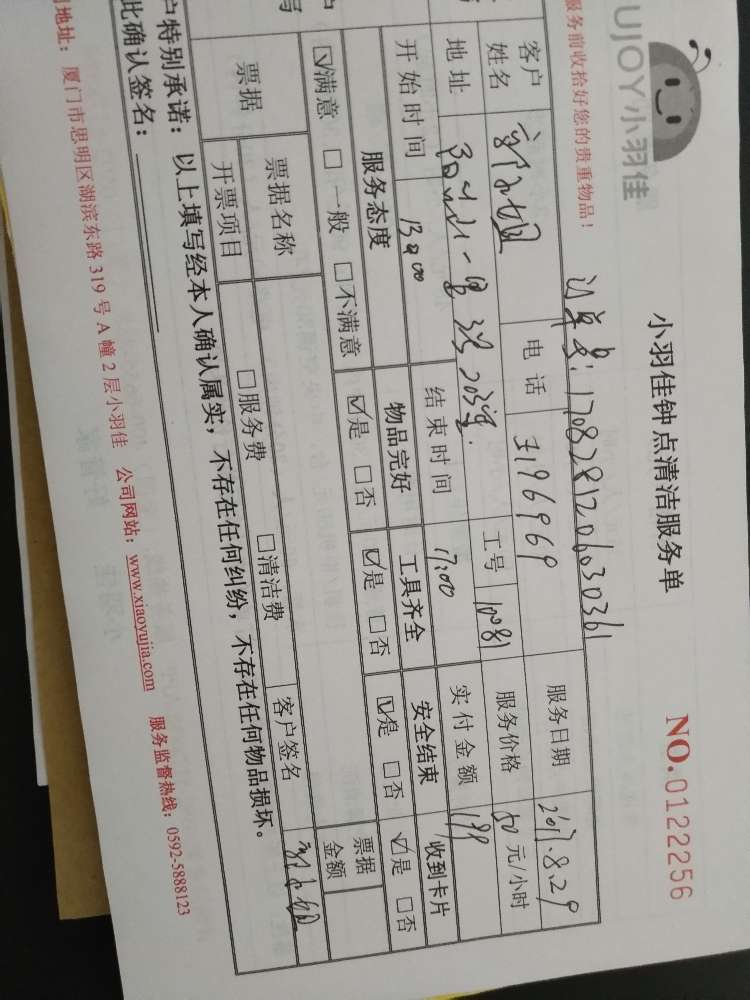 UJOY小羽佳
小羽佳钟点清洁服务单
NO.0122256
服务前收拾好您的贵重物品！
订单号：1708281206030361
客户姓名
电话
3196969
服务日期
2017.8.29
地址
一里
203室
工号
10081
服务价格
50元/小时
开始时间
13:00
结束时间
17:00
实付金额
199
服务态度
物品完好
工具齐全
安全结束
收到卡片
☑满意 □一般 □不满意
☑是 □否
☑是 □否
☑是 □否
☑是 □否
票据
票据名称
票据金额
开票项目
□服务费 □清洁费
客户签名
户特别承诺：以上填写经本人确认属实，不存在任何纠纷，不存在任何物品损坏。
此确认签名：
地址：厦门市思明区湖滨东路 319 号 A 幢 2 层小羽佳 公司网站：www.xiaoyujia.com 服务监督热线：0592-5888123